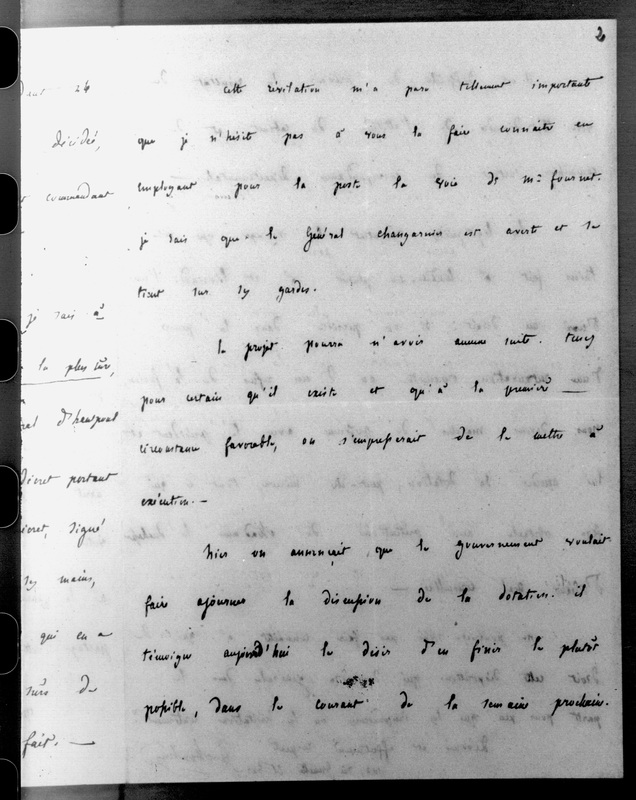 2
dant 24
décidé,
commandant
je sais à
la plus sûre,
ral d'hautpoul
décret portant
décret, signé
les mains,
qui en a
sûrs de
fait. —
cette révélation m'a paru tellement importante
que je n'hésite pas à vous la faire connaître en
employant pour la poste la voie de Mr fournet.
je sais que le Général changarnier est averti et se
tient sur ses gardes.
le projet pourra n'avoir aucune suite. tenez
pour certain qu'il existe et qu'à la première
circonstance favorable, on s'empresserait de le mettre à
exécution. —
hier on annonçait que le gouvernement voulait
faire ajourner la discussion de la dotation. il
témoigne aujourd'hui le désir d'en finir le plutôt
possible, dans le courant de la semaine prochaine.